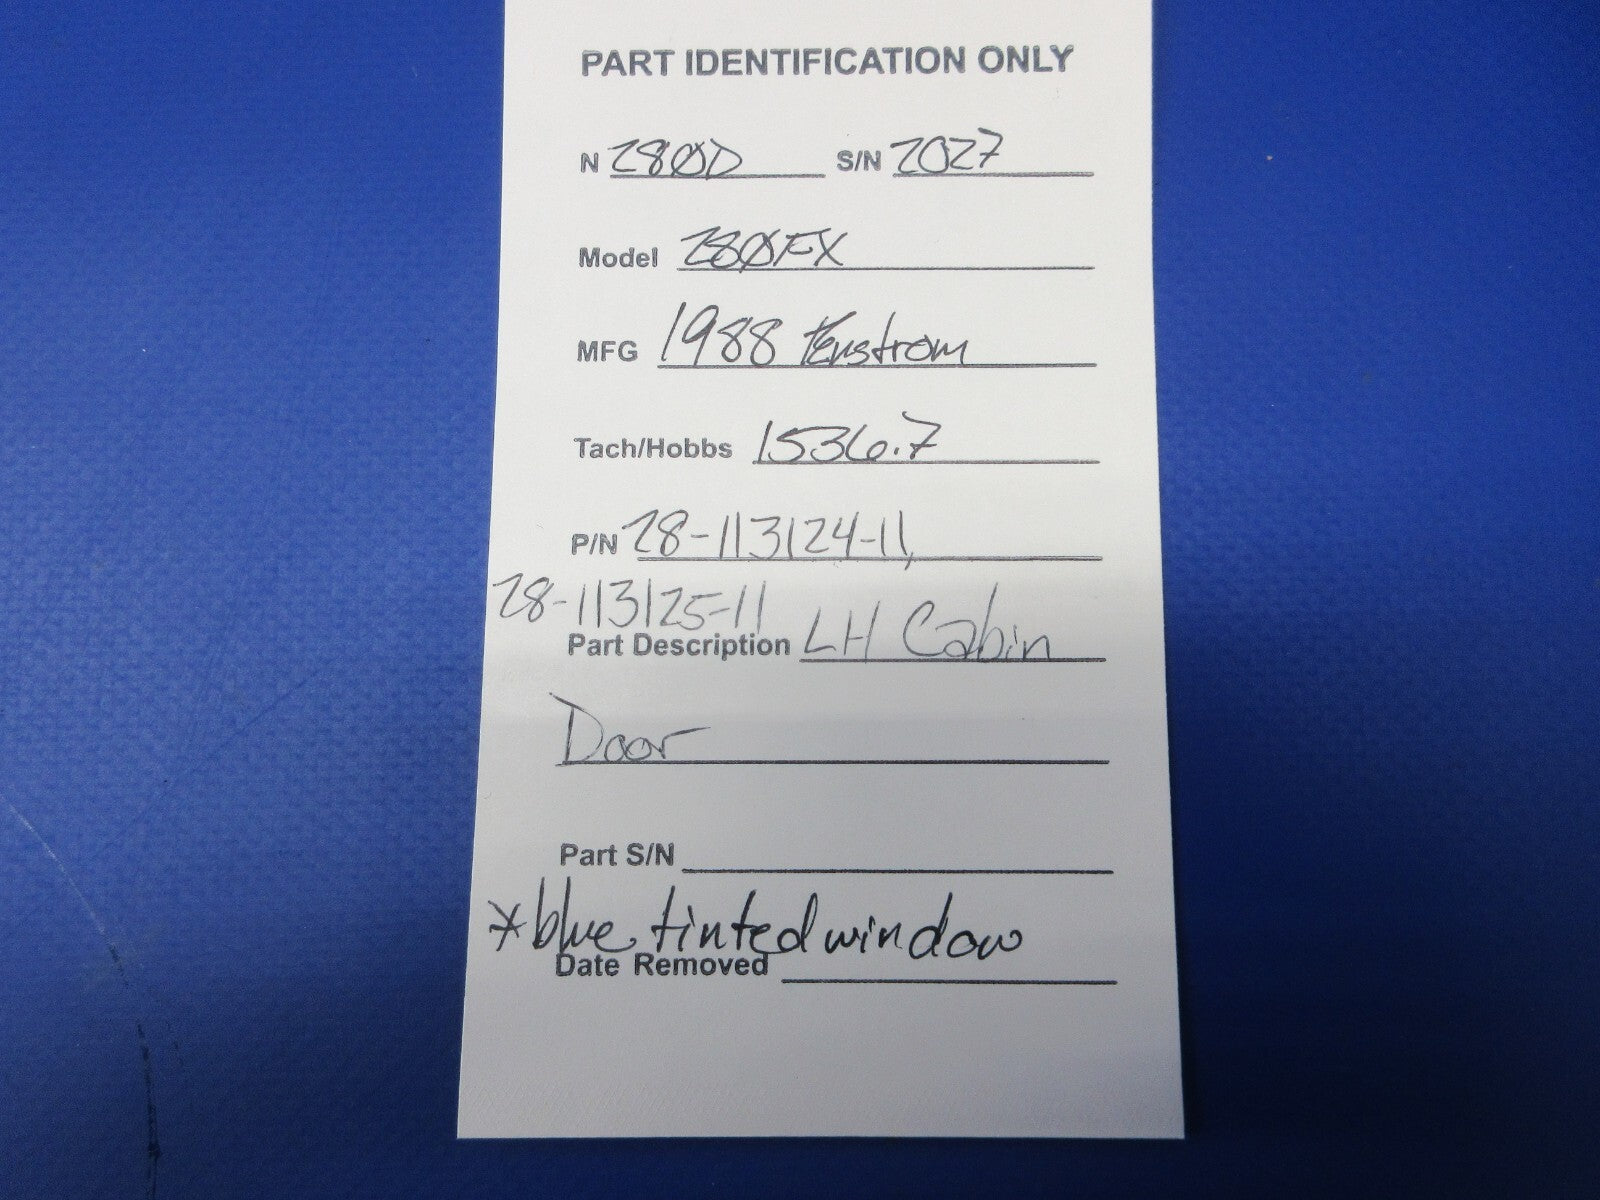 PART IDENTIFICATION ONLY
N 280D S/N 2027
Model 280FX
MFG 1988 Enstrom
Tach/Hobbs 1536.7
P/N 28-113124-11,
28-113125-11
Part Description LH Cabin
Door
Part S/N
*blue tinted window
Date Removed